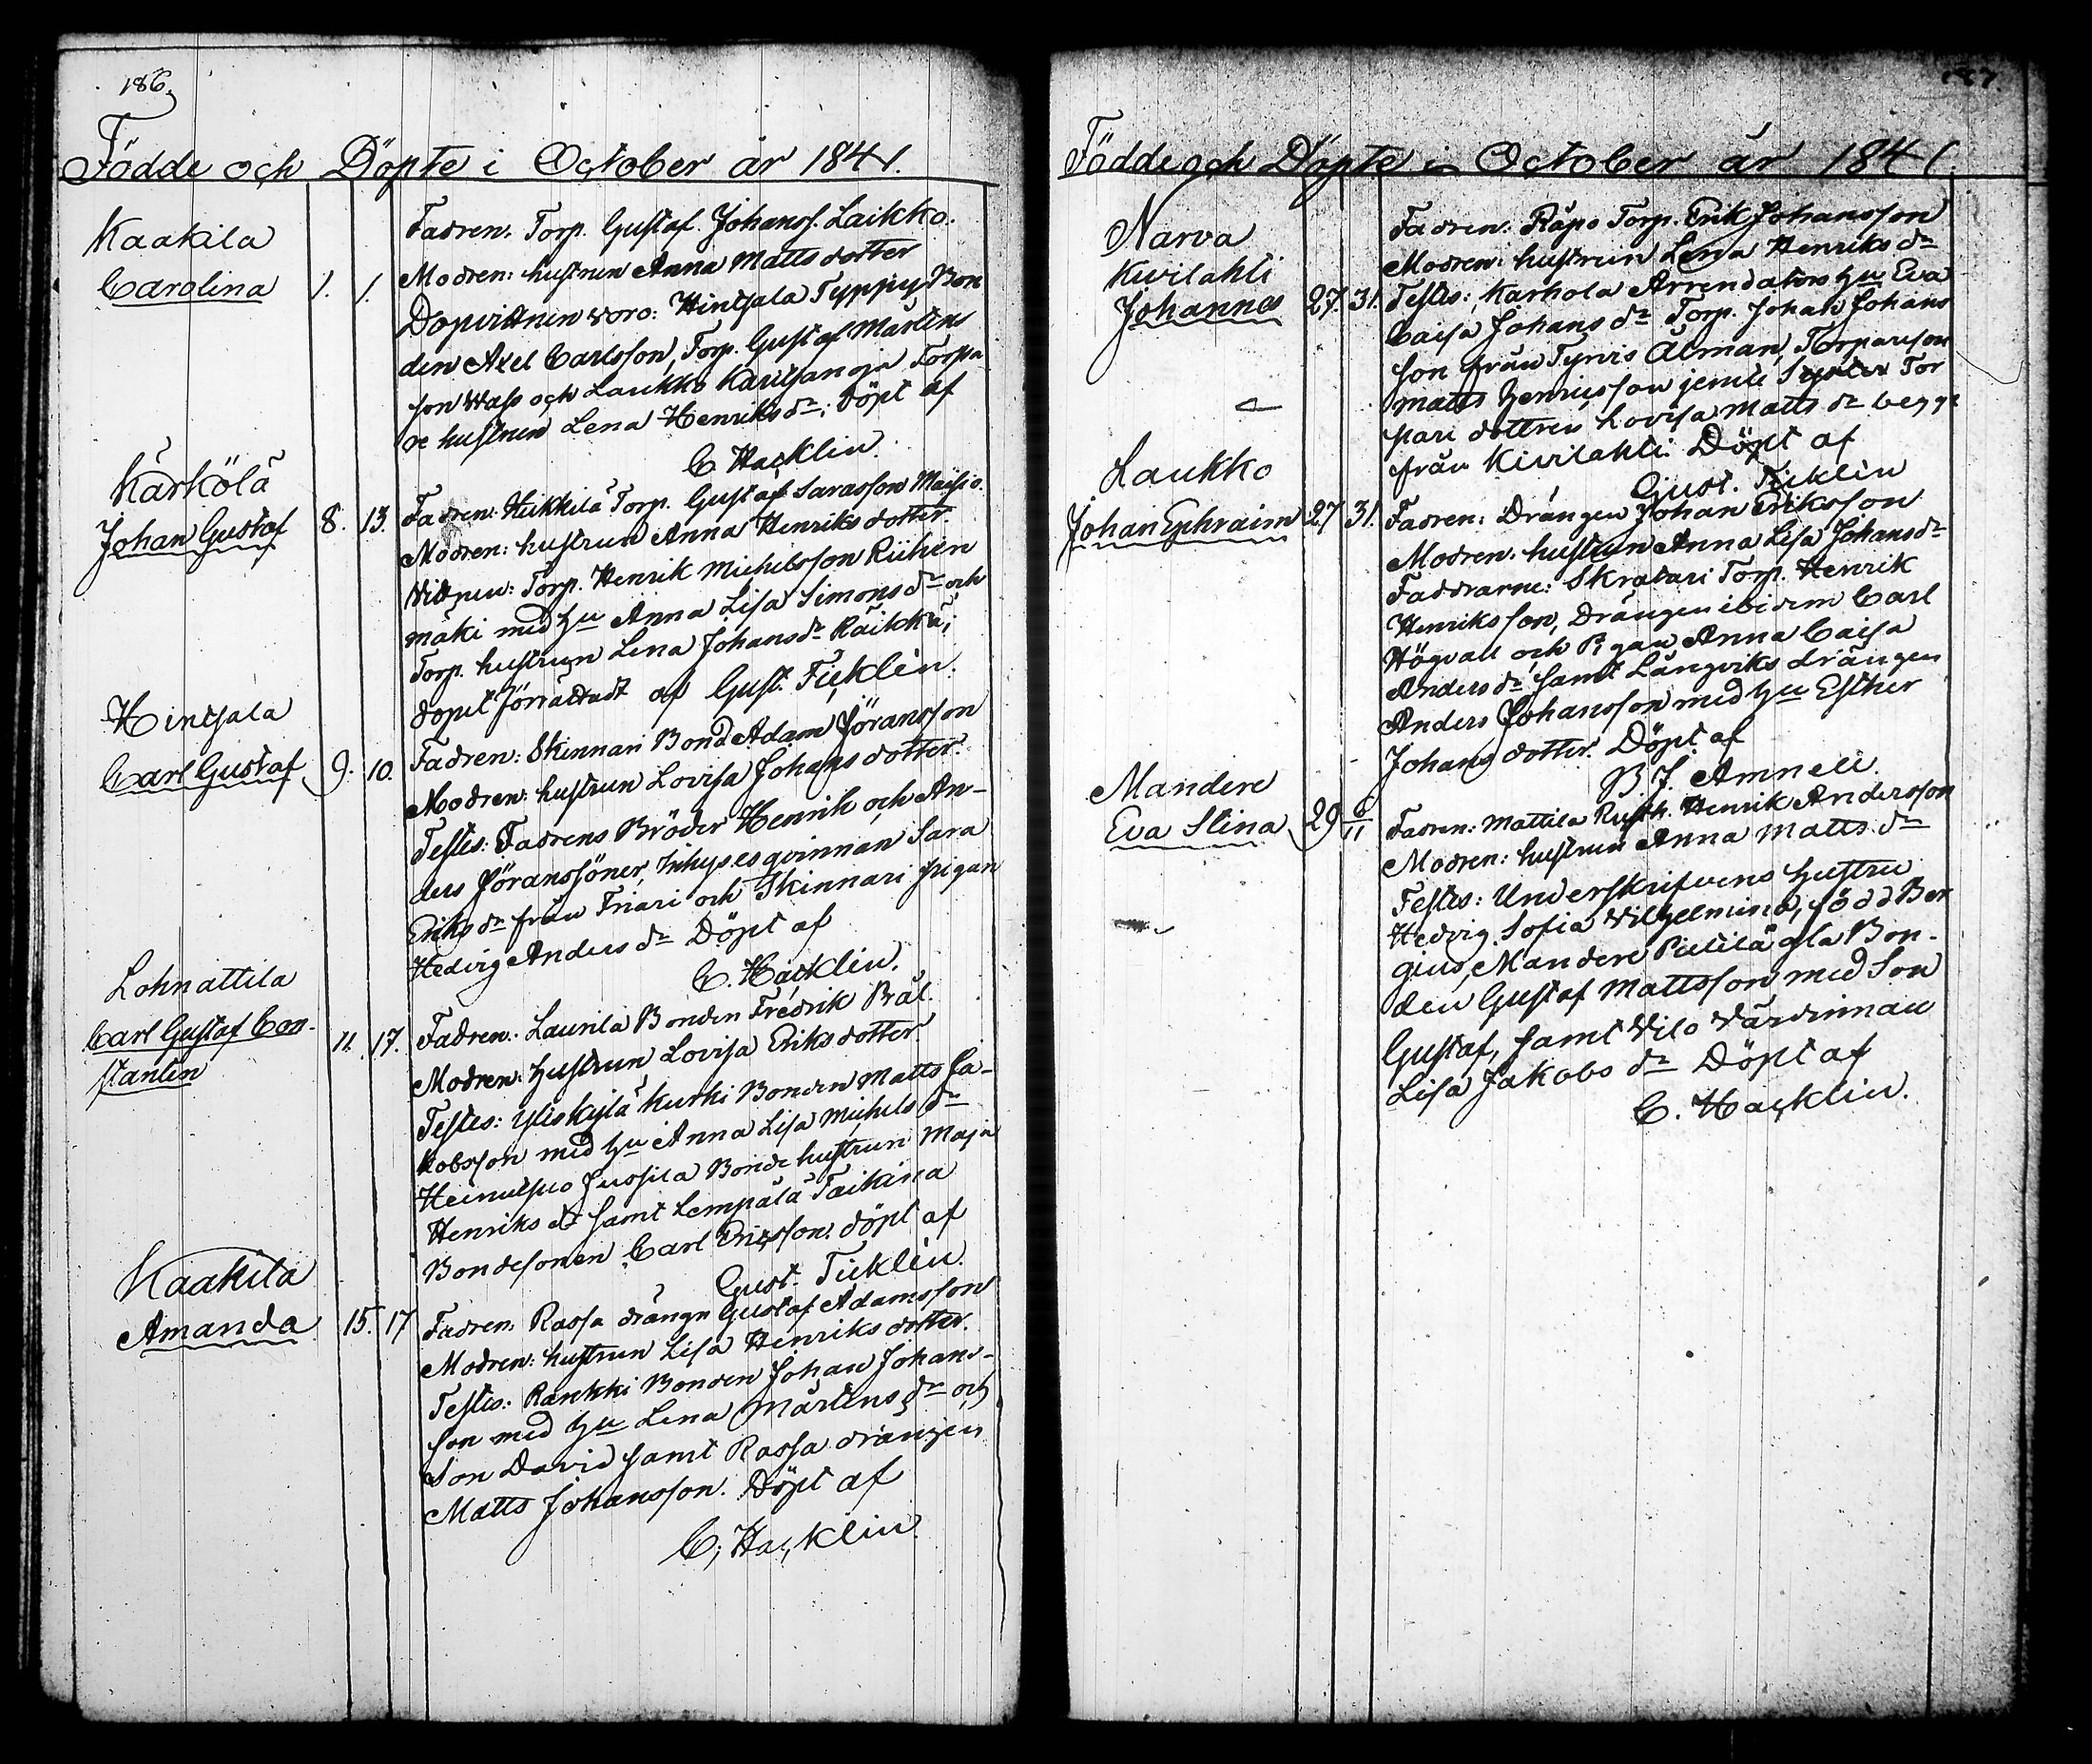 186.
Födde och Döpte i October år 1841.
Kaakila
Carolina 1. 1.
Fadren. Torp. Gustaf Johanss. Laikko.
Modren: hustrun Anna Mattsdotter
Dopvittnen voro: Hinsala Typpy Bon
den Axel Carlsson, Torp. Gustaf Mårtens
son Wass och Laukko Karisanoja Torpa
re hustrun Lena Henriks dr; Döpt af
C Hacklin.
Kärkölä
Johan Gustaf 8. 13.
Fadren: Heikkilä Torp. Gustaf Sarasson Maisio.
Modren: hustrun Anna Henriksdotter.
Vittnen: Torp. Henrik Michelsson Riihen
mäki med hu Anna Lisa Simons dr och
Torp. hustrun Lena Johansdr Räikkä;
döpet förrättadt af Gust. Ticklén.
Hinsala
Carl Gustaf 9. 10.
Fadren: Skinnari Bond Adam Jöransson
Modren: hustrun Lovisa Johansdotter
Testes: Fadrens Bröder Henrik och An-
ders Jöranssöner, Inhyses qvinnan Sara
Eriks dr från Friari och Skinnari pigan
Hedvig Anders dr Döpt af
C. Hacklin.
Lohnattila
Carl Gustaf Con-
stantin 11. 17.
Fadren: Laurila Bonden Fredrik Präl.
Modren: Hustrun Lovisa Eriksdotter
Testes: Yliskylä Kurki Bonden Matts Ja-
kobsson med hu Anna Lisa Michels dr
Heinulsuo Jussila Bonde hustrun Maja
Henriks dr samt Lempälä Taikina
Bondesonen Carl Ericsson. döpt af
Gust. Ticklén.
Kaakila
Amanda 15. 17
Fadren: Rassa drängn Gustaf Adamsson
Modren: hustrun Lisa Henriksdotter.
Testes: Rankki Bonden Johan Johans-
son med hu Lena Mårtens dr och
Son David samt Rassa drängen
Matts Johansson. Döpt af
C. Hacklin
187.
Födde och Döpte i October år 1841.
Narva
Kivilahti
Johannes 27. 31.
Fadren: Räpo Torp. Erik Johansson
Modren: hustrun Lena Henriks dr
Testes: Karhola Arrendators hu Eva
Caisa Johans dr Torp. Johan Johans
son från Tyrvis Alman, Torpareson
Matts Henricsson jemte Syster Tor
pare dottren Lovisa Matts dr begge
från Kivilahti. Döpt af
Gust. Ticklén
Laukko
Johan Ephraim 27 31.
Fadren: Drängen Johan Eriksson
Modren: hustrun Anna Lisa Johansdr
Faddrarne: Skratari Torp. Henrik
Henriksson, Drängen ibidem Carl
Högvall och Pigan Anna Caisa
Anders dr samt Långviks drängen
Anders Johansson med hu Esther
Johans dotter. Döpt af
B J. Amnell.
Mandere
Eva Stina 29 6/11
Fadren: Mattila Rusth. Henrik Andersson
Modren: hustrun Anna Matts dr
Testes: Underskrifvens hustru
Hedvig Sofia Vilhelmina, född Ber
gius, Mandere Pietilä gla Bon-
den Gustaf Mattsson med Son
Gustaf, samt Vilo Värdinnan
Lisa Jakobs dr Döpt af
C. Hacklin.